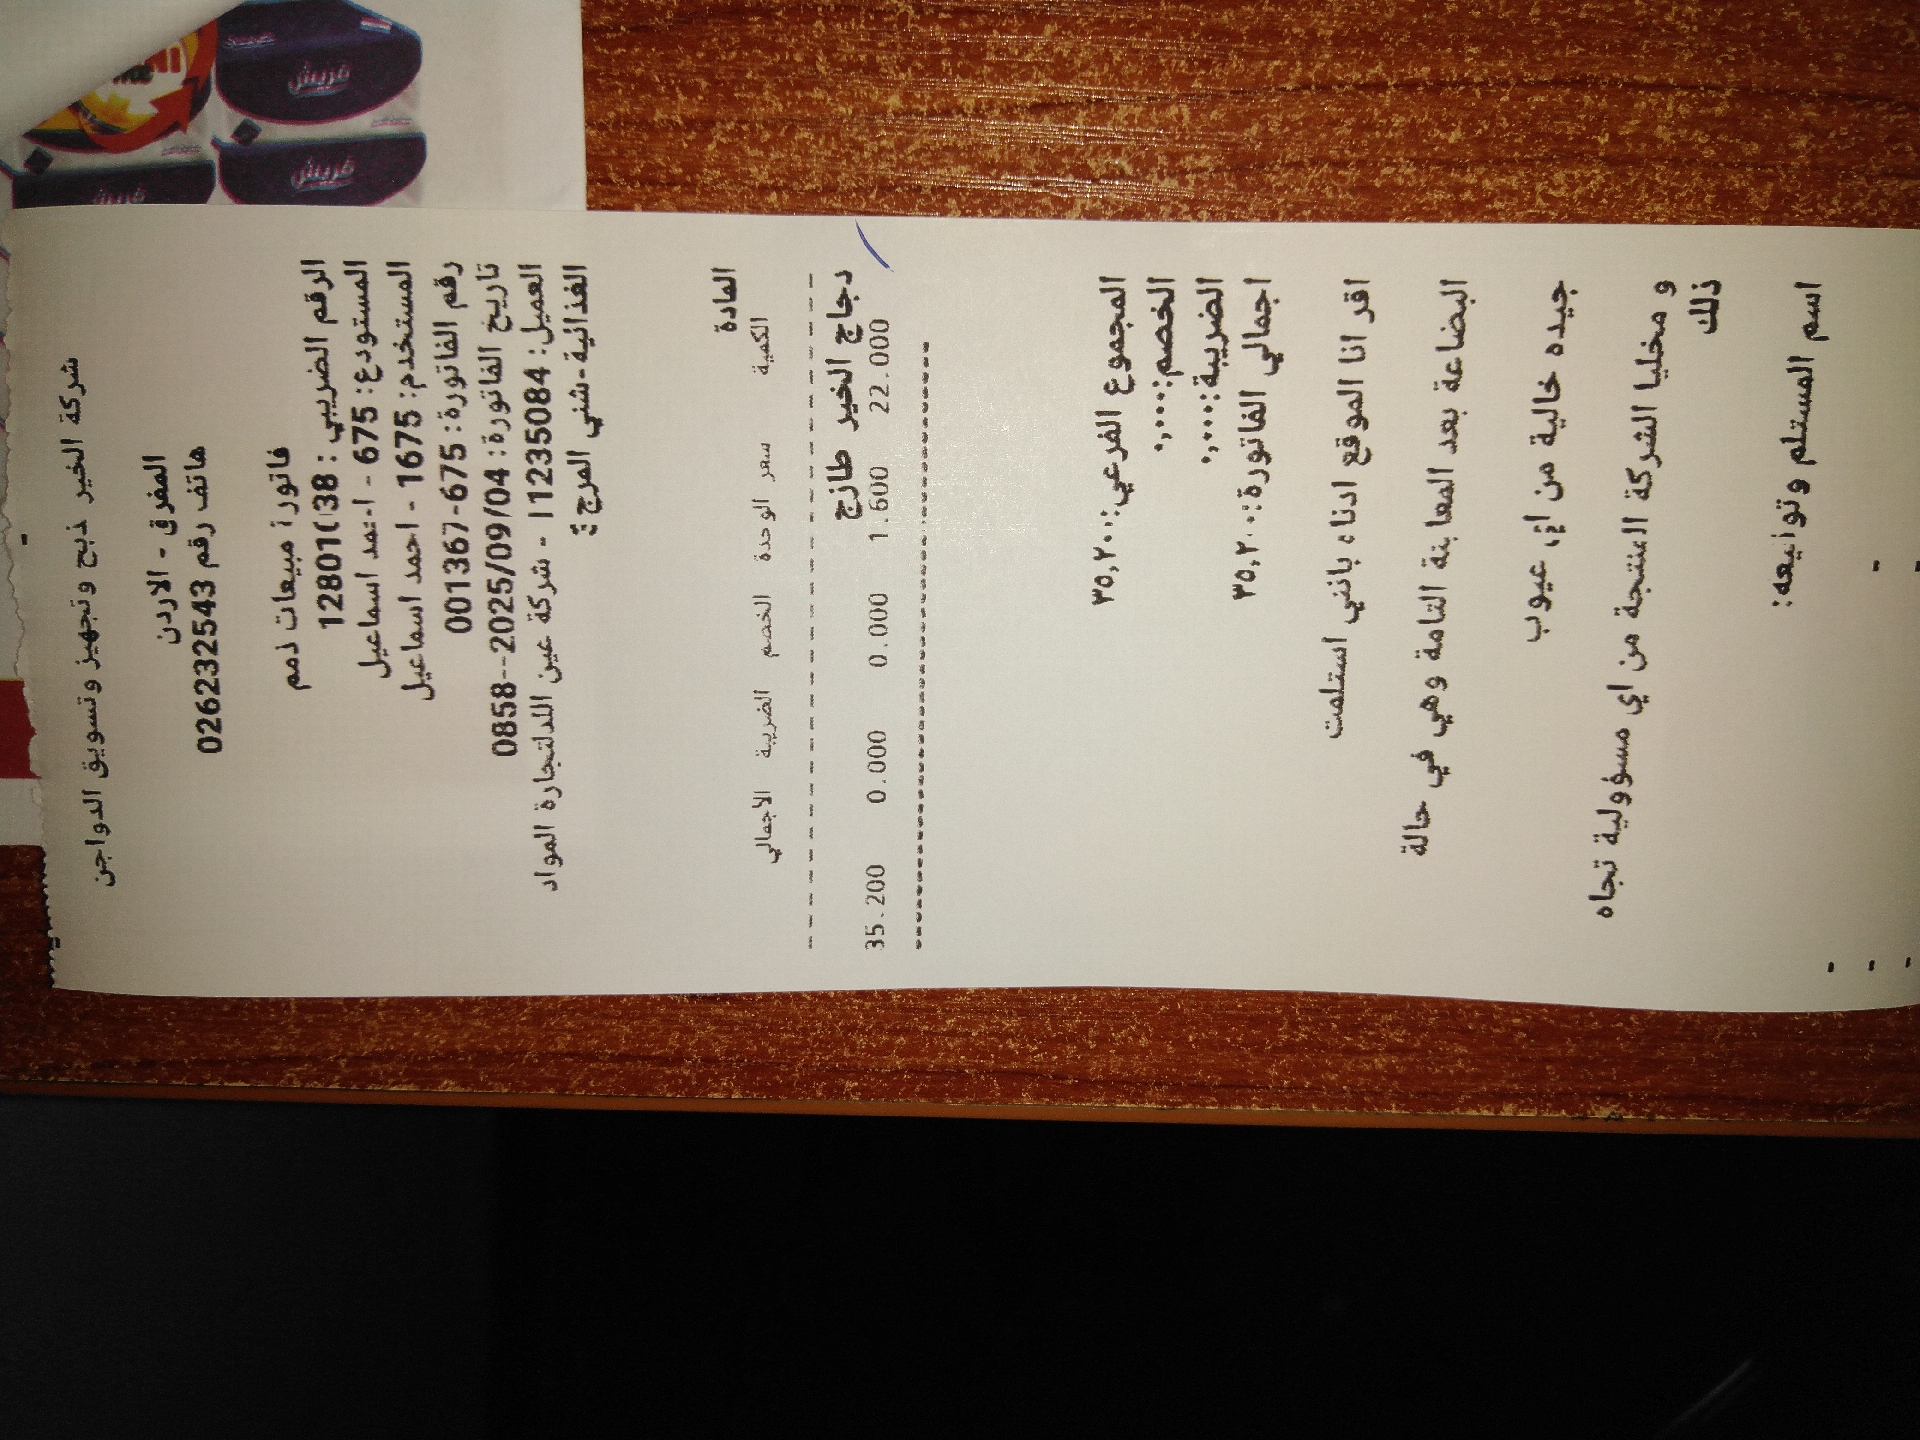 قريش
قريش
قريش
شركة الخير ذبح وتجهيز وتسويق الدواجن
المفرق - الاردن
هاتف رقم 026232543
فاتورة مبيعات ذمم
الرقم الضريبي :
المستودع: 675 - احمد اسماعيل
المستخدم: 1675 - احمد اسماعيل
رقم الفاتورة: 675-001367
تاريخ الفاتورة: 2025/09/04--0858
العميل: 11235084 - شركة عين اللدلتجارة المواد
الغذائية-شني المرج
المادة
الكمية سعر الوحدة الخصم الضريبة الاجمالي
دجاج الخير طازج
22.000 1.600 0.000 0.000 35.200
المجموع الفرعي:٣٥,٢٠٠
الخصم:٠,٠٠٠
الضريبة:٠,٠٠٠
اجمالي الفاتورة:٣٥,٢٠٠
اقر انا الموقع ادناه بانني استلمت
البضاعة بعد المعاينة التامة وهي في حالة
جيده خالية من اي عيوب
و مخليا الشركة المنتجة من اي مسؤولية تجاه
ذلك
اسم المستلم وتوقيعه: